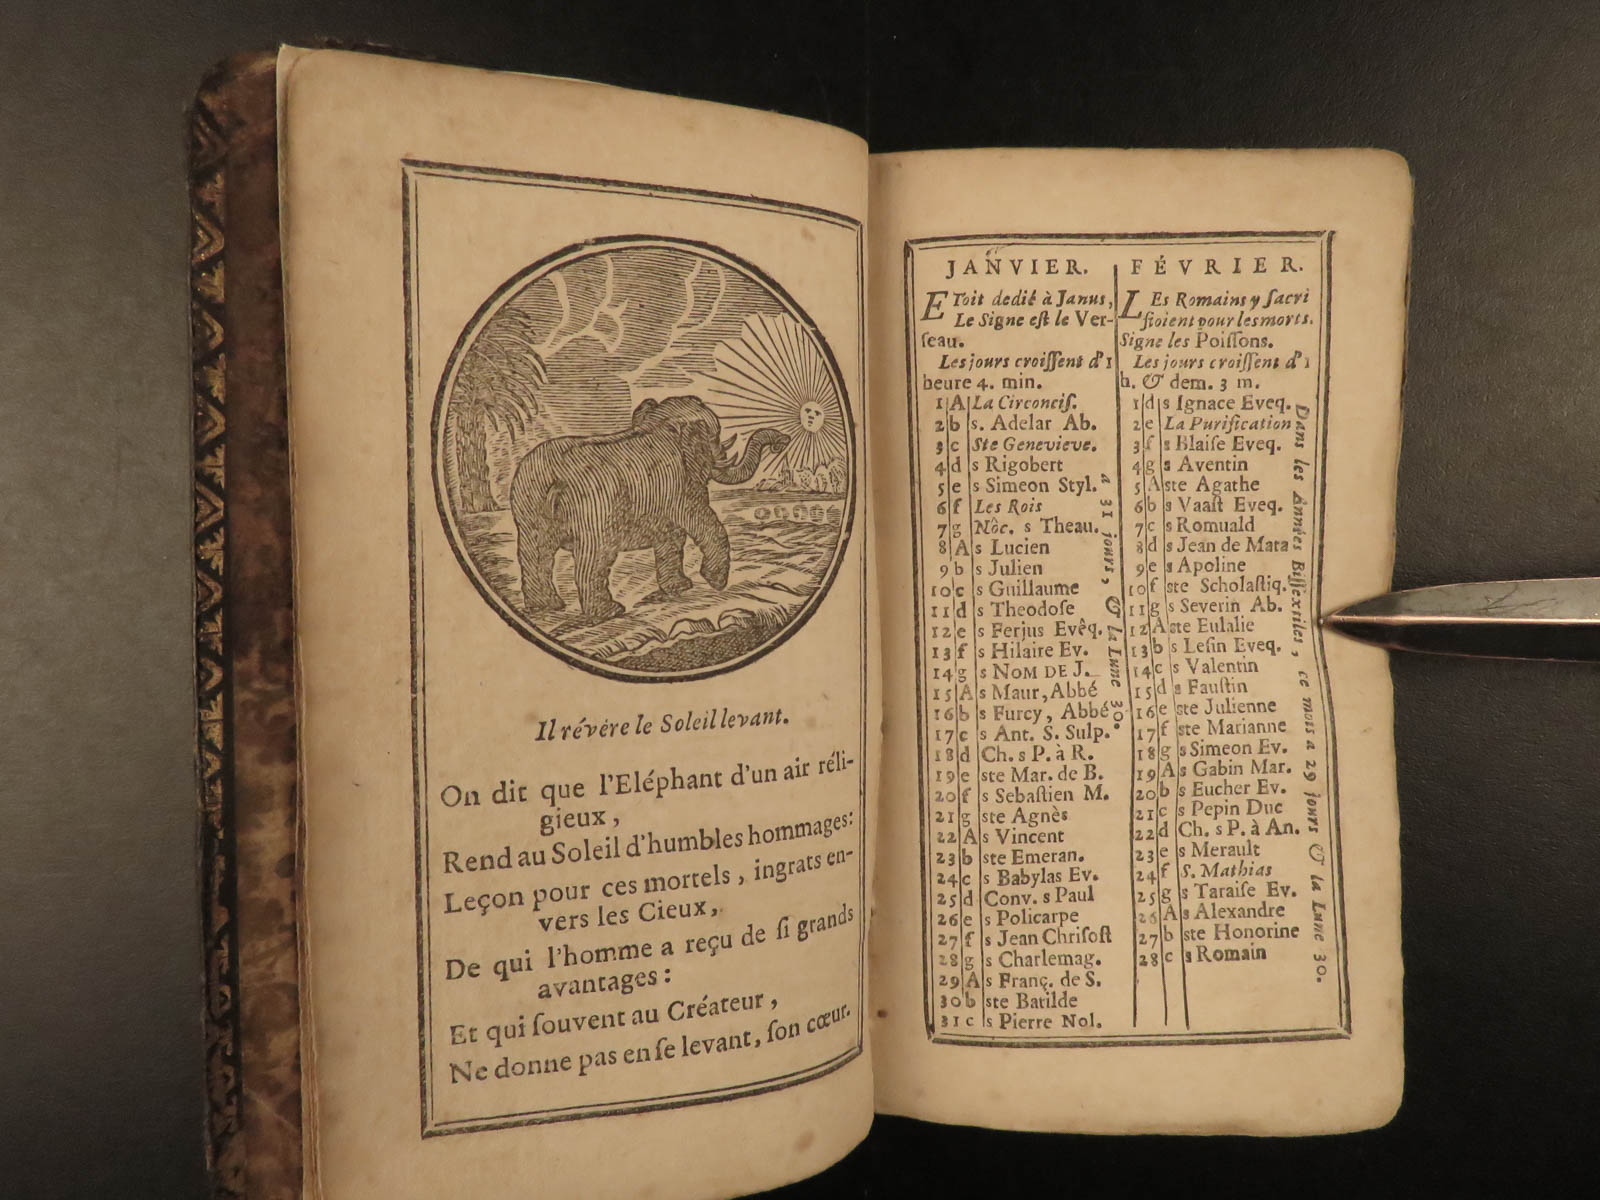 Il révère le Soleil levant.
On dit que l'Eléphant d'un air réli-
gieux,
Rend au Soleil d'humbles hommages:
Leçon pour ces mortels, ingrats en-
vers les Cieux,
De qui l'homme a reçu de ſi grands
avantages:
Et qui ſouvent au Créateur,
Ne donne pas en ſe levant, ſon cœur.
JANVIER.
EToit dedié à Janus,
Le Signe eſt le Ver-
ſeau.
Les jours croiſſent d'1
heure 4. min.
1 A La Circonciſ.
2 b s. Adelar Ab.
3 c Ste Genevieve.
4 d s Rigobert
5 e s Simeon Styl.
6 f Les Rois
7 g Nôc. s Theau.
8 A s Lucien
9 b s Julien
10 c s Guillaume
11 d s Theodoſe
12 e s Ferjus Evêq.
13 f s Hilaire Ev.
14 g s NOM DE J.
15 A s Maur, Abbé
16 b s Furcy, Abbé
17 c s Ant. S. Sulp.
18 d Ch. s P. à R.
19 e ste Mar. de B.
20 f s Sebaſtien M.
21 g ste Agnès
22 A s Vincent
23 b ste Emeran.
24 c s Babylas Ev.
25 d Conv. s Paul
26 e s Policarpe
27 f s Jean Chriſoſt
28 g s Charlemag.
29 A s Franç. de S.
30 b ste Batilde
31 c s Pierre Nol.
a 31 jours, & la Lune 30.
FÉVRIER.
LEs Romains y ſacri
fioient pour les morts.
Signe les Poiſſons.
Les jours croiſſent d'1
h. & dem. 3 m.
1 d s Ignace Eveq.
2 e La Purification
3 f s Blaiſe Eveq.
4 g s Aventin
5 A ste Agathe
6 b s Vaaſt Eveq.
7 c s Romuald
8 d s Jean de Mata
9 e s Apoline
10 f ste Scholaſtiq.
11 g s Severin Ab.
12 A ste Eulalie
13 b s Leſin Eveq.
14 c s Valentin
15 d s Fauſtin
16 e ste Julienne
17 f ste Marianne
18 g s Simeon Ev.
19 A s Gabin Mar.
20 b s Eucher Ev.
21 c s Pepin Duc
22 d Ch. s P. à An.
23 e s Merault
24 f S. Mathias
25 g s Taraiſe Ev.
26 A s Alexandre
27 b ste Honorine
28 c s Romain
Dans les Années Biſſextiles, ce mois a 29 jours & la Lune 30.